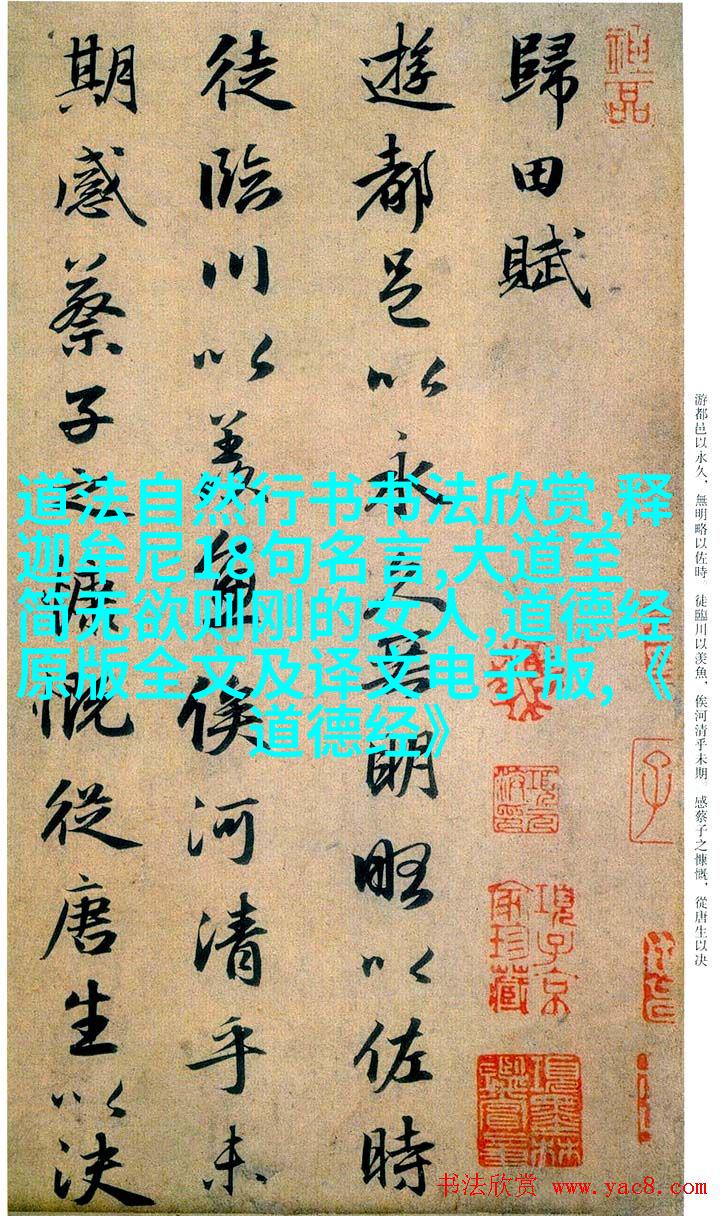 歸田賦
遊都邑以永久無明略以佐時
徒臨川以羨魚俟河清乎未
期感蔡子之慷慨從唐生以决
道法自然行书书法欣赏,释
迦牟尼18句名言,大道至
简无欲则刚的女人,道德经
原版全文及译文电子版,《
道德经》
游都邑以永久，無明略以佐時 徒臨川以羨魚，俟河清乎未期 感蔡子之慷慨，從唐生以决
项子京
家珍藏
书法欣赏 www.yac8.com